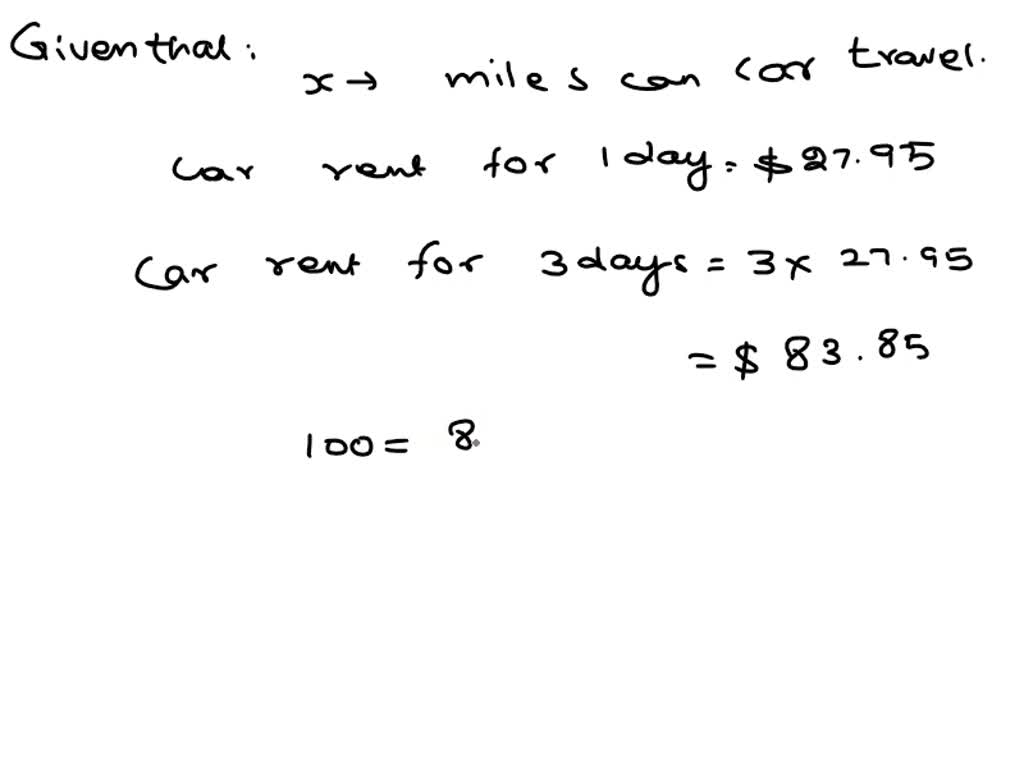 Given that:
x → miles can car travel.
car rent for 1 day = $27.95
Car rent for 3 days = 3 x 27.95
= $ 83.85
100 = 8